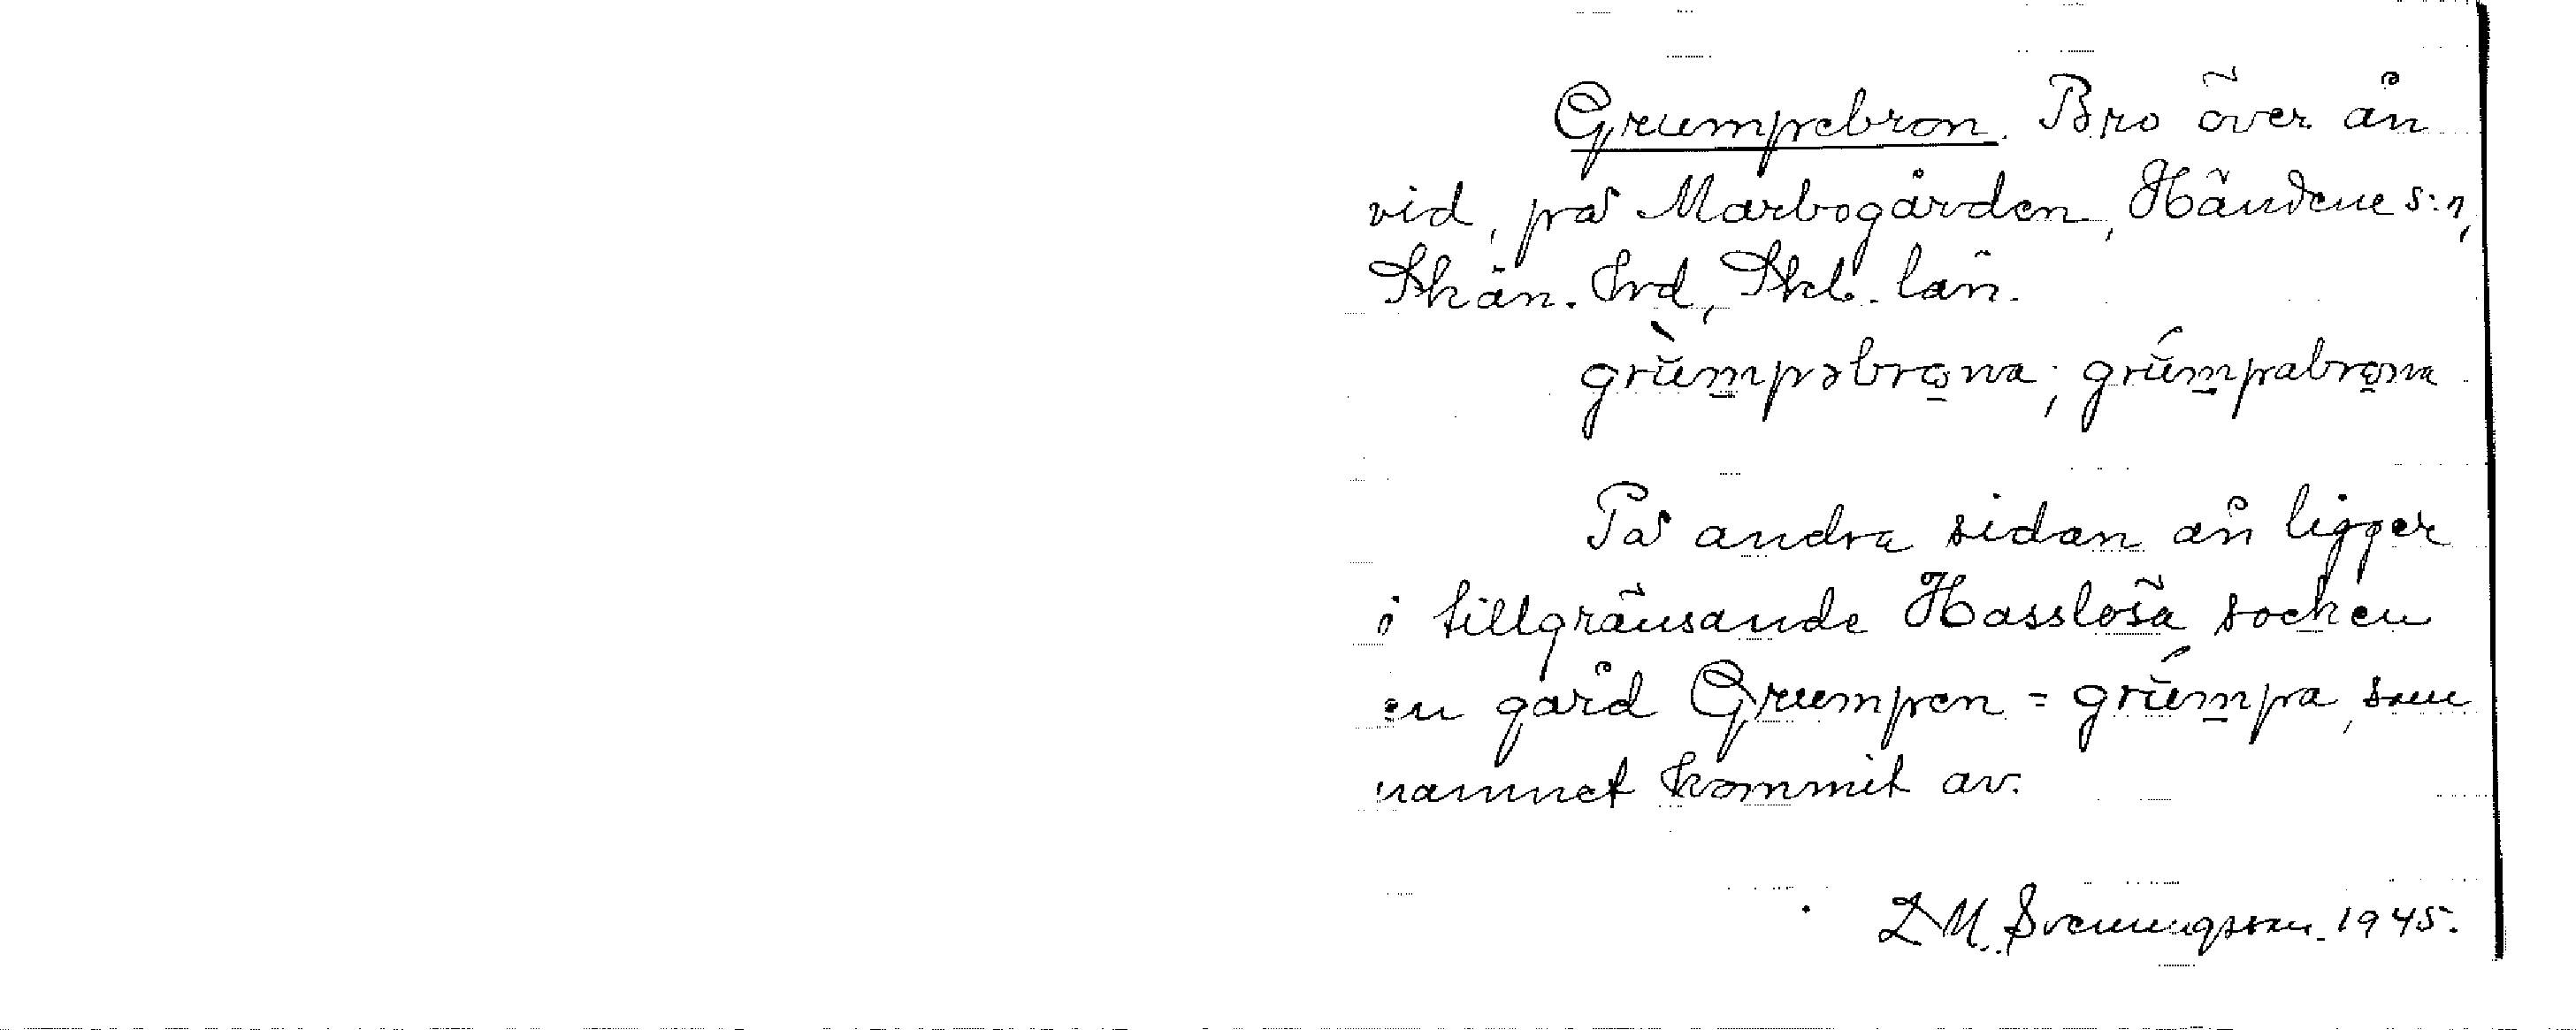 Grumpebron. Bro över ån
vid, på Marbogården, Händene s:n,
Skån. hrd, Skb. län.
grùmpəbrǫna; grúmpabrǫna
På andra sidan ån ligger
i tillgränsande Hasslösa socken
en gård Grumpen = grúmpa, som
namnet kommit av.
L M. Svenungsson 1945.